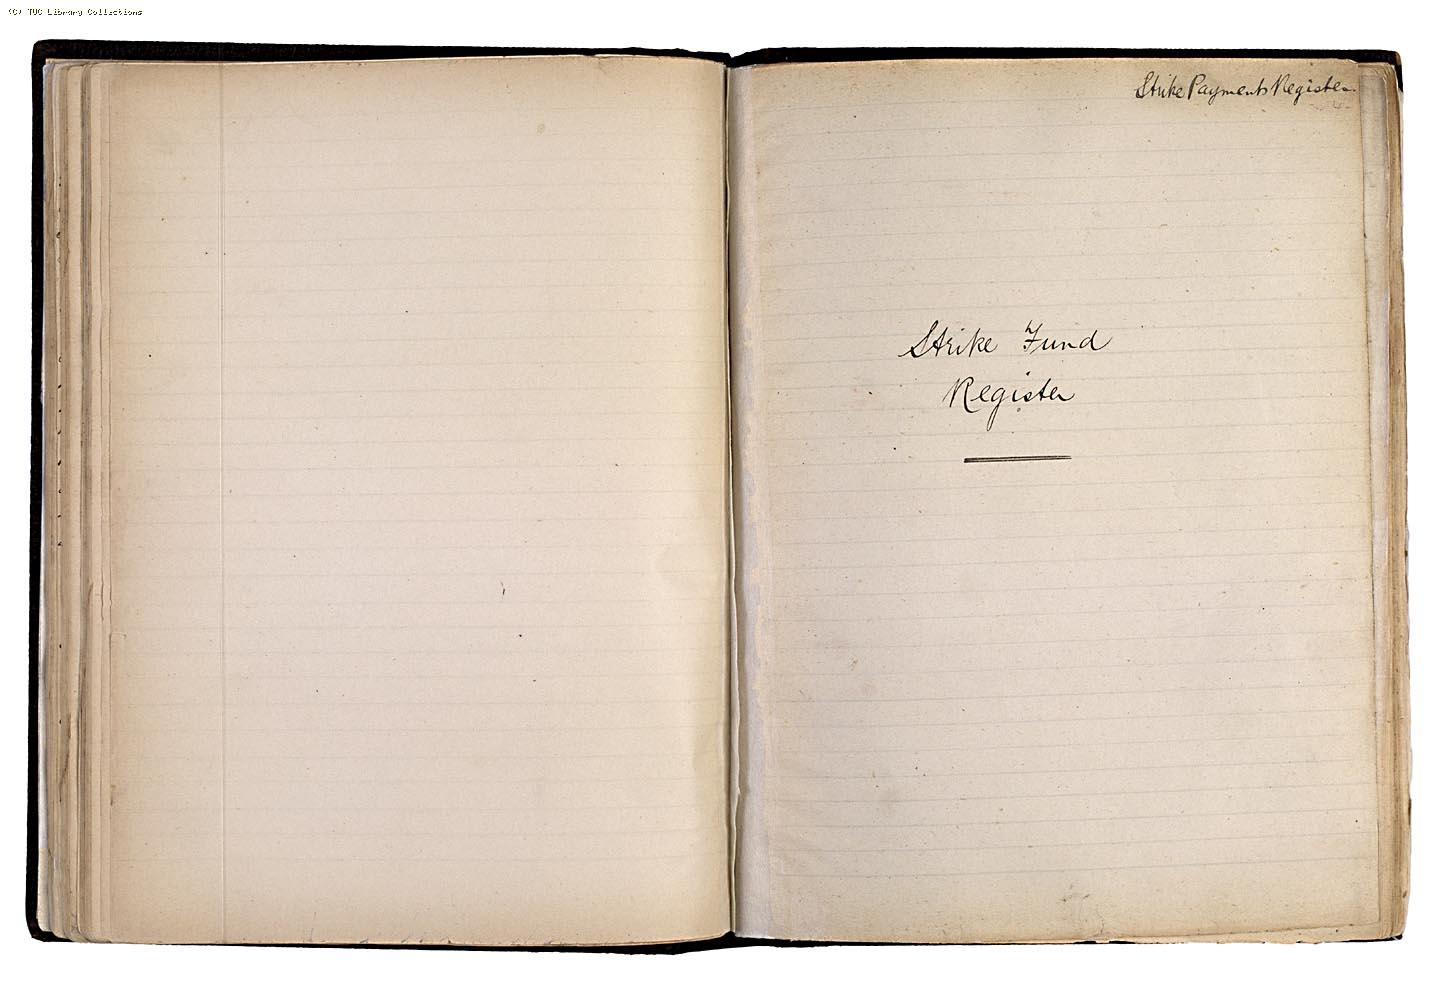 (C) TUC Library Collections
Strike Payments Register.
Strike Fund
Register